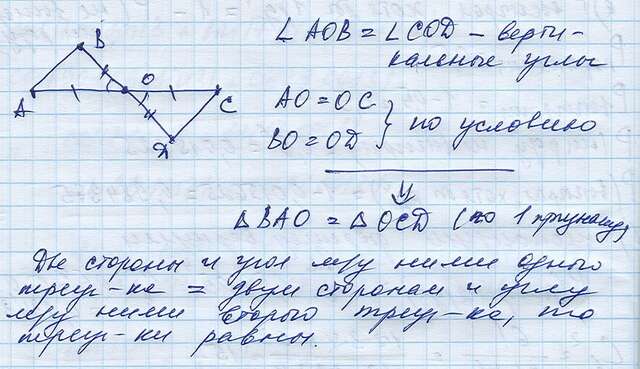 B
O
A
C
D
∠ AOB = ∠ COD - верти-
кальные углы
AO = OC
BO = OD } по условию
△ BAO = △ OCD (по 1 признаку)
Две стороны и угол м/у ними одного
треуг-ка = двум сторонам и углу
м/у ними второго треуг-ка, то
треуг-ки равны.